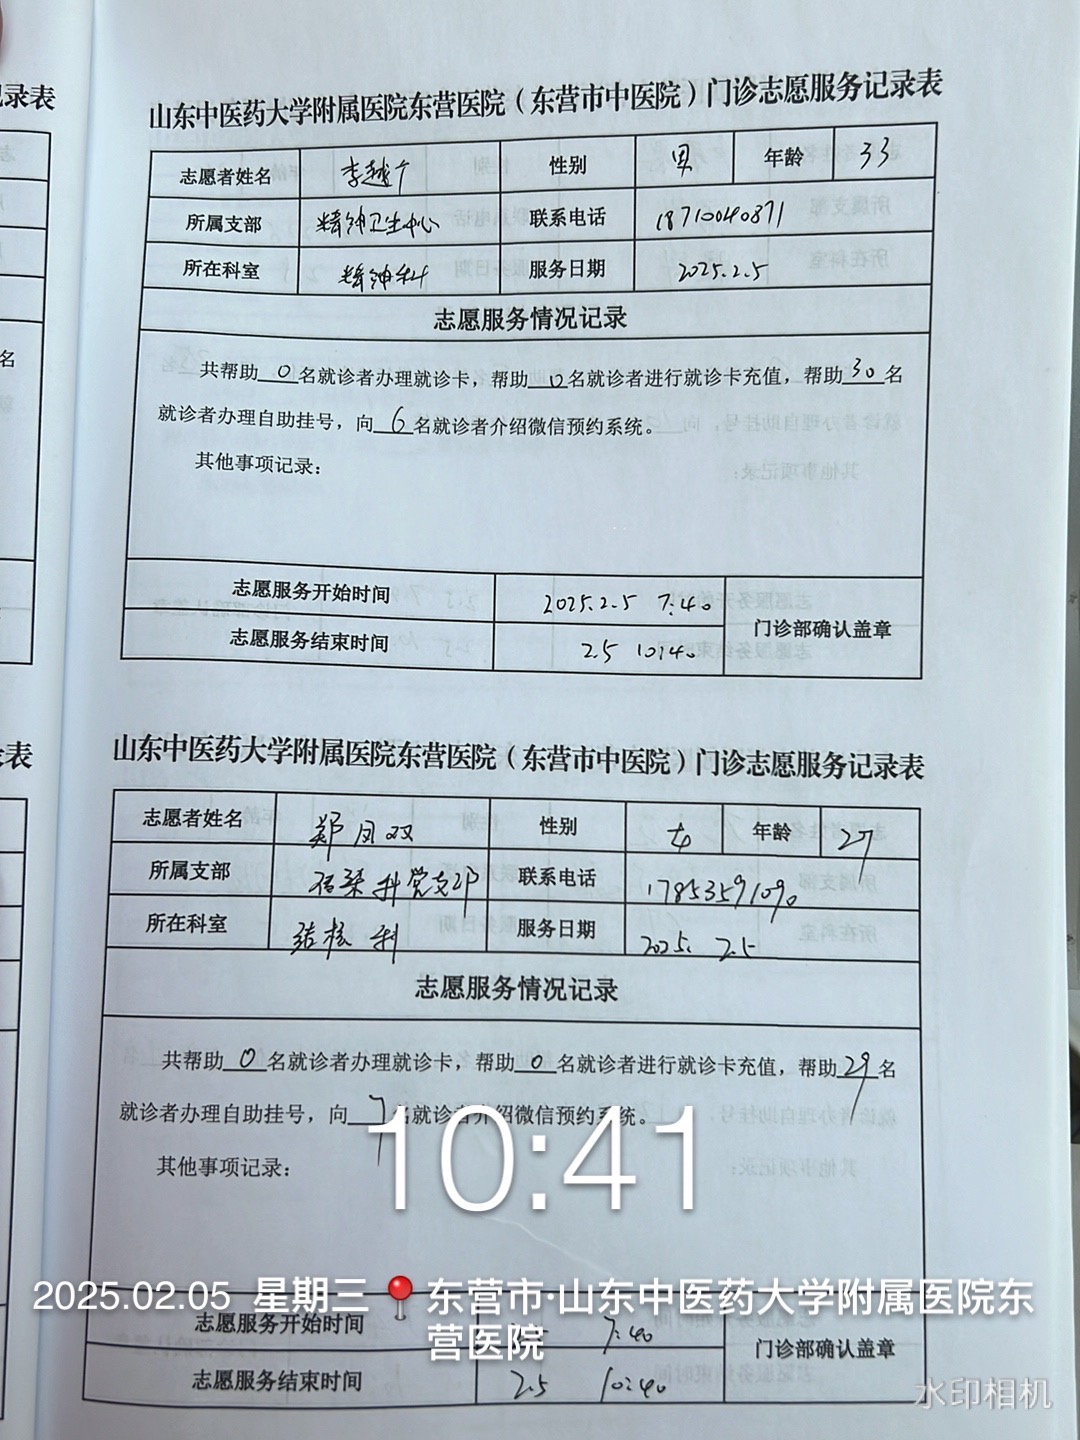 记录表
名
山东中医药大学附属医院东营医院（东营市中医院）门诊志愿服务记录表
志愿者姓名 李越 性别 男 年龄 33
所属支部 精神卫生中心 联系电话 18710040371
所在科室 精神科 服务日期 2025.2.5
志愿服务情况记录
共帮助 0 名就诊者办理就诊卡，帮助 0 名就诊者进行就诊卡充值，帮助 30 名
就诊者办理自助挂号，向 6 名就诊者介绍微信预约系统。
其他事项记录：
志愿服务开始时间 2025.2.5 7:40
门诊部确认盖章
志愿服务结束时间 2.5 10:40
录表
山东中医药大学附属医院东营医院（东营市中医院）门诊志愿服务记录表
志愿者姓名 郑凤双 性别 女 年龄 27
所属支部 结核科党支部 联系电话 17853591090
所在科室 结核科 服务日期 2025. 2.5
志愿服务情况记录
共帮助 0 名就诊者办理就诊卡，帮助 0 名就诊者进行就诊卡充值，帮助 29 名
就诊者办理自助挂号，向 7 名就诊者介绍微信预约系统。
其他事项记录：
10:41
2025.02.05 星期三 东营市·山东中医药大学附属医院东
营医院
志愿服务开始时间 2.5 7:40
门诊部确认盖章
志愿服务结束时间 2.5 10:40
水印相机